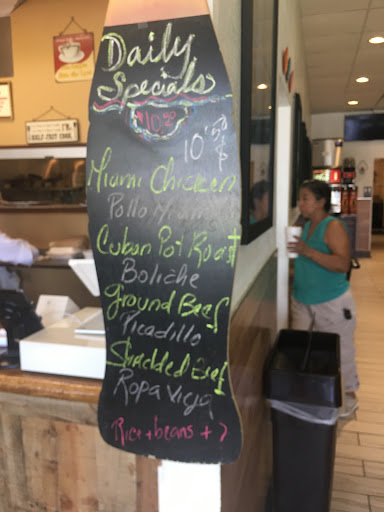 Daily
Specials
$10.50
10'50
Miami Chicken
Pollo Miami
Cuban Pot Roast
Boliche
Ground Beef
Picadillo
Shredded Beef
Ropa Vieja
Rice + beans +